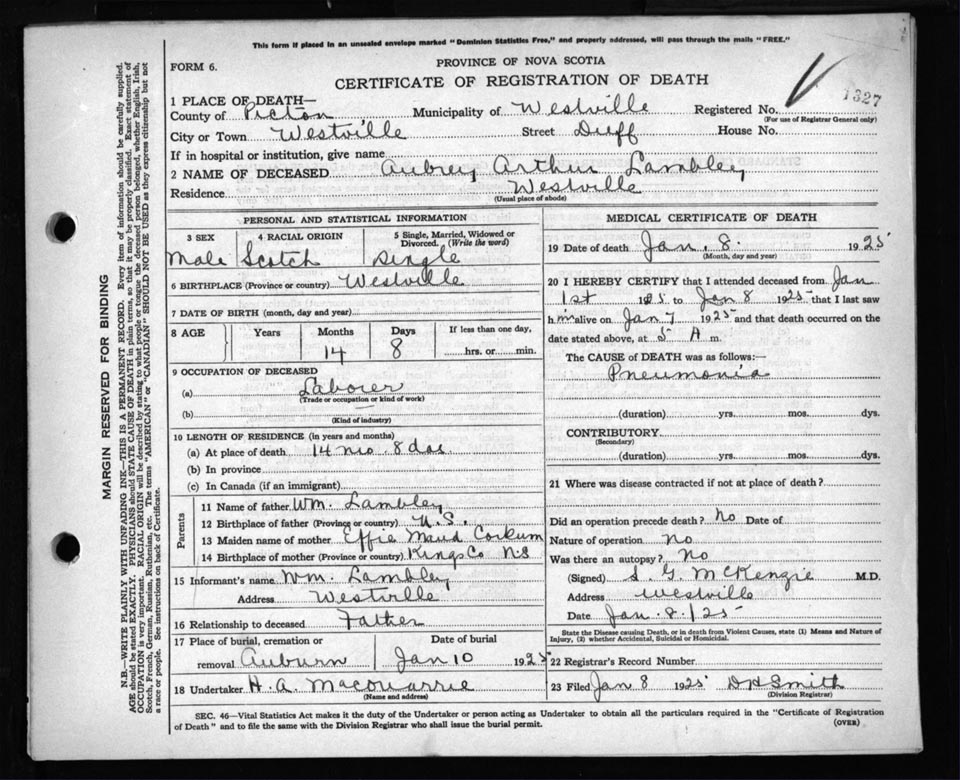 This form if placed in an unsealed envelope marked "Dominion Statistics Free," and properly addressed, will pass through the mails "FREE."
FORM 6.
PROVINCE OF NOVA SCOTIA
CERTIFICATE OF REGISTRATION OF DEATH
1327
1 PLACE OF DEATH—
County of Picton Municipality of Westville Registered No.
(For use of Registrar General only)
City or Town Westville Street Duff House No.
If in hospital or institution, give name
2 NAME OF DECEASED Aubrey Arthur Lambley
Residence Westville
(Usual place of abode)
PERSONAL AND STATISTICAL INFORMATION
3 SEX 4 RACIAL ORIGIN 5 Single, Married, Widowed or Divorced. (Write the word)
Male Scotch Single
6 BIRTHPLACE (Province or country) Westville
7 DATE OF BIRTH (month, day and year)
8 AGE Years Months Days If less than one day,
14 8 hrs. or min.
9 OCCUPATION OF DECEASED
(a) Laborer
(Trade or occupation or kind of work)
(b)
(Kind of industry)
10 LENGTH OF RESIDENCE (in years and months)
(a) At place of death 14 mo. 8 das
(b) In province
(c) In Canada (if an immigrant)
Parents
11 Name of father Wm. Lambley
12 Birthplace of father (Province or country) U.S.
13 Maiden name of mother Effie Maud Corkum
14 Birthplace of mother (Province or country) Kings Co NS
15 Informant's name Wm. Lambley
Address Westville
16 Relationship to deceased Father
17 Place of burial, cremation or removal Auburn Date of burial Jan 10 1925
18 Undertaker H. A. Macquarrie
(Name and address)
MEDICAL CERTIFICATE OF DEATH
19 Date of death Jan. 8. 1925
(Month, day and year)
20 I HEREBY CERTIFY that I attended deceased from Jan
1st 1925 to Jan 8 1925 that I last saw
him alive on Jan 7 1925 and that death occurred on the
date stated above, at 5 A m.
The CAUSE of DEATH was as follows:—
Pneumonia
(duration) yrs. mos. dys.
CONTRIBUTORY
(Secondary)
(duration) yrs. mos. dys.
21 Where was disease contracted if not at place of death?
Did an operation precede death? No Date of
Nature of operation No
Was there an autopsy? No
(Signed) S. G. McKenzie M.D.
Address Westville
Date Jan. 8 / 25
State the Disease causing Death, or in death from Violent Causes, state (1) Means and Nature of
Injury, (2) whether Accidental, Suicidal or Homicidal.
22 Registrar's Record Number
23 Filed Jan 8 1925 D H Smith
(Division Registrar)
SEC. 46—Vital Statistics Act makes it the duty of the Undertaker or person acting as Undertaker to obtain all the particulars required in the "Certificate of Registration
of Death" and to file the same with the Division Registrar who shall issue the burial permit.
(OVER)
MARGIN RESERVED FOR BINDING
N.B.—WRITE PLAINLY WITH UNFADING INK—THIS IS A PERMANENT RECORD. Every item of information should be carefully supplied.
AGE should be stated EXACTLY. PHYSICIANS should STATE CAUSE OF DEATH in plain terms, so that it may be properly classified. Exact statement of
OCCUPATION is very important. RACIAL ORIGIN will be described by stating to what people or tongue the deceased person belonged, whether English, Irish,
Scotch, French, German, Russian, Ruthenian, etc. The terms "AMERICAN" or "CANADIAN" SHOULD NOT BE USED as they express citizenship but not
a race or people. See instructions on back of Certificate.